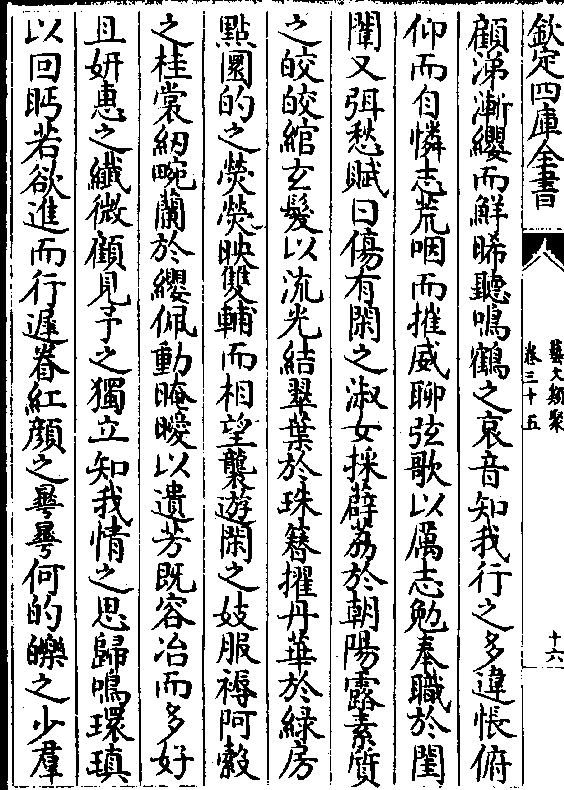 欽定四庫全書
藝文類聚
卷三十五
十六
顧涕漸纓而鮮晞聽鳴鶴之哀音知我行之多違悵俯
仰而自憐志荒咽而摧威聊弦歌以厲志勉奉職於閨
闈又弭愁賦曰傷有閑之淑女採薜荔於朝陽露素質
之皎皎綰玄髮以流光結翠葉於珠簪擢丹華於綠房
點圜的之熒熒映雙輔而相望襲遊閑之妓服褥阿縠
之桂裳紉畹蘭於纓佩動晻曖以遺芳既容冶而多好
且妍惠之纖微顧見予之獨立知我情之思歸鳴環瑱
以回眄若欲進而行遲眷紅顏之㬥㬥何的皪之少羣